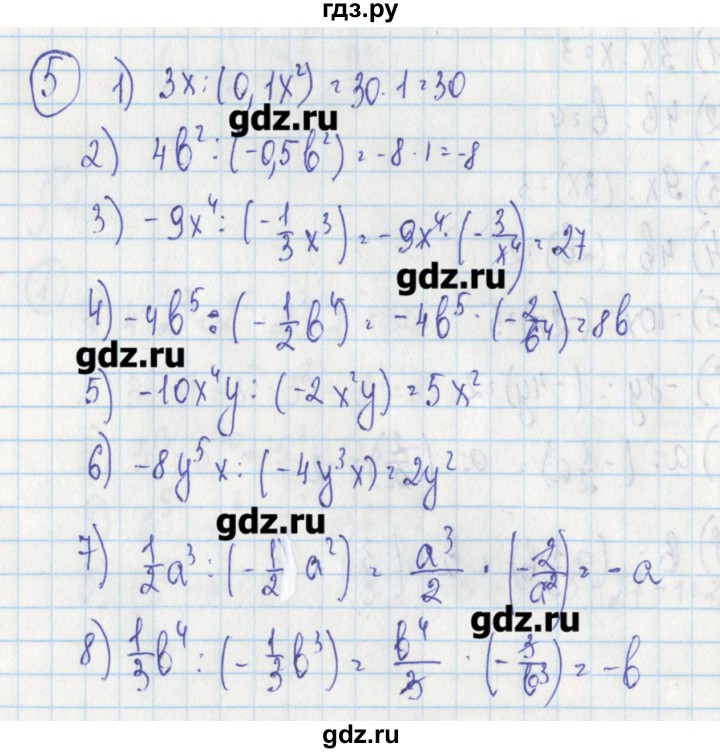 гдз.ру
5 1) 3x : (0,1x²) = 30 · 1 = 30
gdz.ru
2) 4b² : (-0,5b²) = -8 · 1 = -8
3) -9x⁴ : (-1/3 x³) = -9x⁴ · (-3/x⁴) = 27
gdz.ru
4) -4b⁵ : (-1/2 b⁴) = -4b⁵ · (-2/b⁴) = 8b
gdz.ru
5) -10x⁴y : (-2x²y) = 5x²
6) -8y⁵x : (-4y³x) = 2y²
gdz.ru
7) 1/2 a³ : (-1/2 a²) = a³/2 · (-2/a²) = -a
gdz.ru
8) 1/3 b⁴ : (-1/3 b³) = b⁴/3 · (-3/b³) = -b
gdz.ru